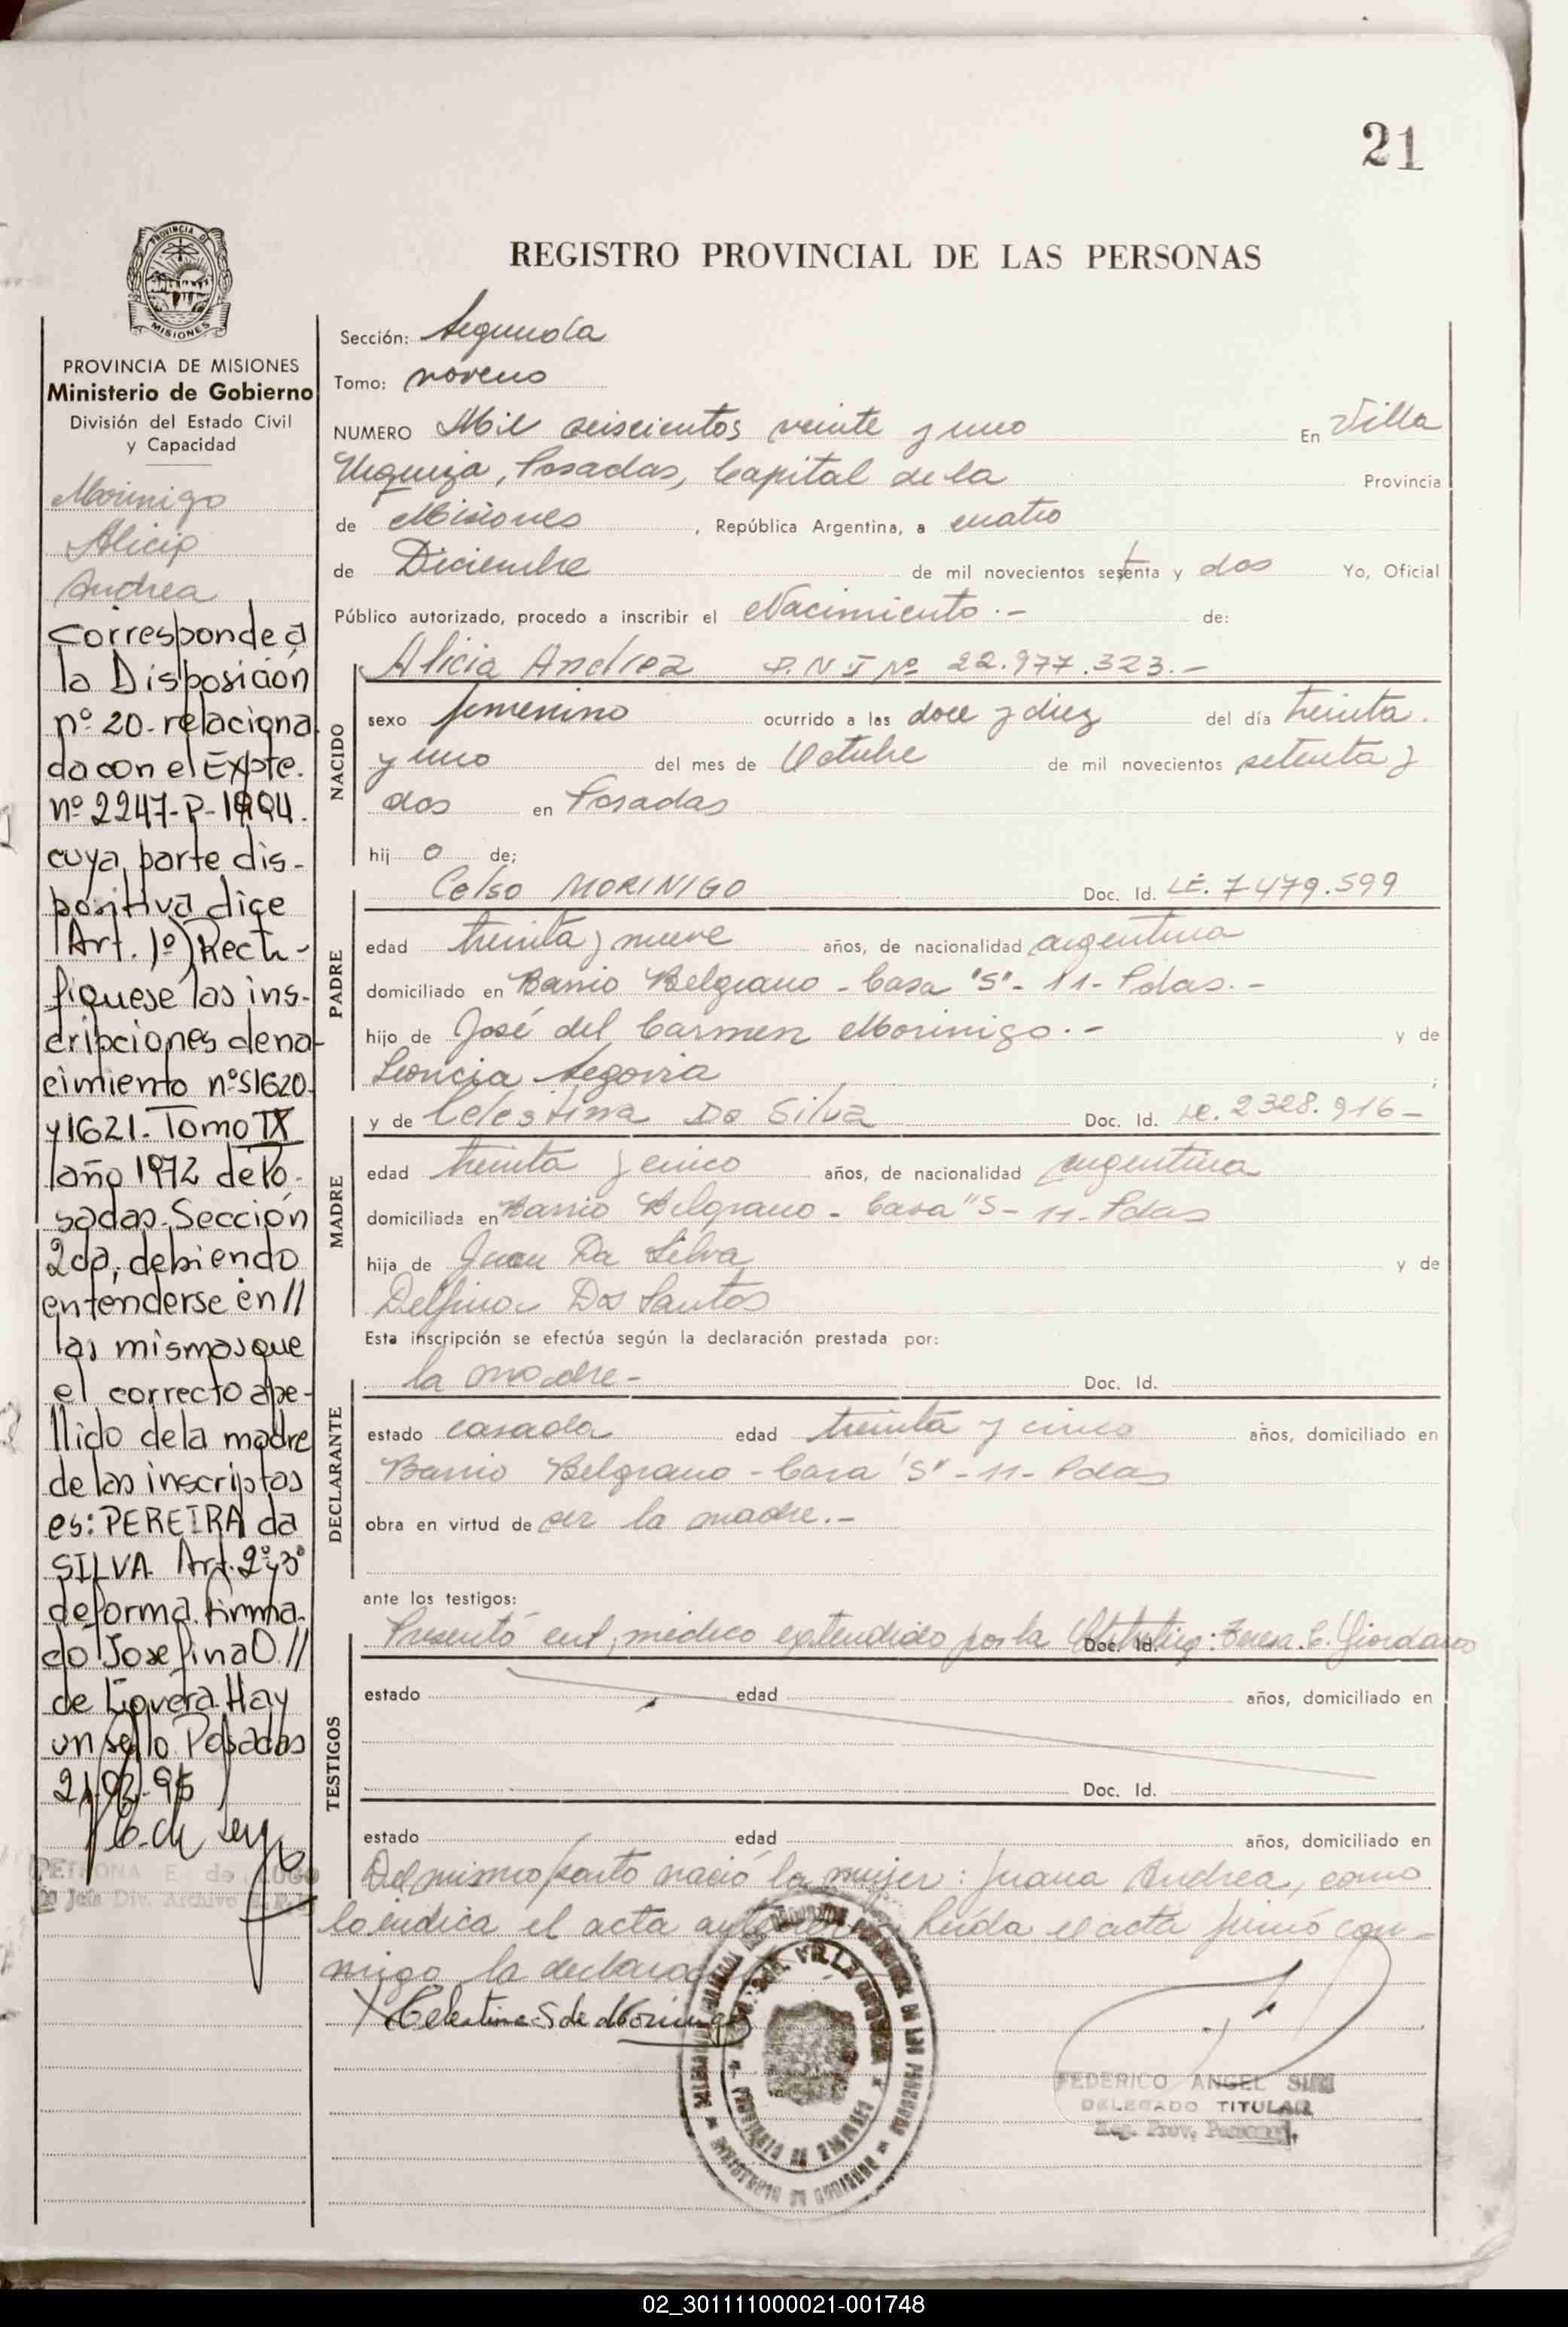 21
REGISTRO PROVINCIAL DE LAS PERSONAS
PROVINCIA DE
MISIONES
PROVINCIA DE MISIONES
Ministerio de Gobierno
División del Estado Civil
y Capacidad
Morinigo
Alicia
Andrea
Corresponde a
la Disposición
nº 20- relaciona
da con el Expte.
nº 2247-P-1994.
cuya parte dis-
positiva dice
Art. 1º) Recti-
fiquese las ins-
cripciones de na-
cimiento nºs 1620
y 1621. Tomo IX
año 1972 de Po-
sadas. Sección
2da, debiendo
entenderse en //
las mismas que
el correcto ape-
llido de la madre
de las inscriptas
es: PEREIRA da
SILVA. Art. 2º y 3º
de forma. firma-
do Josefina O. //
de Hay
un sello Posadas
PETRONA E. de LUGO
Jefe Div. Archivo
Sección: Segunda
Tomo: noveno
NUMERO Mil seiscientos veinte y uno En Villa
Urquiza, Posadas, Capital de la Provincia
de Misiones, República Argentina, a cuatro
de Diciembre de mil novecientos setenta y dos Yo, Oficial
Público autorizado, procedo a inscribir el Nacimiento.- de:
Alicia Andrea D.N.I Nº 22.977.323.-
NACIDO
sexo femenino ocurrido a las doce y diez del día treinta
y uno del mes de Octubre de mil novecientos setenta y
dos en Posadas
hij o de;
Celso MORINIGO Doc. Id. LE. 7479.599
PADRE
edad treinta y nueve años, de nacionalidad argentina
domiciliado en Barrio Belgrano - Casa "S"- 11- Pdas.-
hijo de José del Carmen Morinigo.- y de
Leoncia Segovia ;
y de Celestina Da Silva Doc. Id. LC. 2328.916-
MADRE
edad treinta y cinco años, de nacionalidad argentina
domiciliada en Barrio Belgrano - Casa "S- 11- Pdas
hija de Juan Da Silva y de
Delfina Dos Santos
Esta inscripción se efectúa según la declaración prestada por:
la madre- Doc. Id.
DECLARANTE
estado casada edad treinta y cinco años, domiciliado en
Barrio Belgrano - Casa "S" - 11- Pdas
obra en virtud de ser la madre.-
ante los testigos:
Presentó cert. médico extendido por la Doc. Id. Giordano
TESTIGOS
estado edad años, domiciliado en
Doc. Id.
estado edad años, domiciliado en
Del mismo parto nació la mujer: Juana Andrea, como
lo indica el acta Leída el acta firmó con-
migo la
Celestina S de Morinigo
FEDERICO ANGEL SIRI
DELEGADO TITULAR
Reg. Prov. Personas
02_301111000021-001748